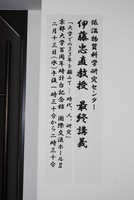 低温物質科学研究センター
伊藤忠直教授 最終講義
京都大学百周年時計台記念館 国際交流ホールⅡ
二月十三日(水)午後一時三十分から二時三十分